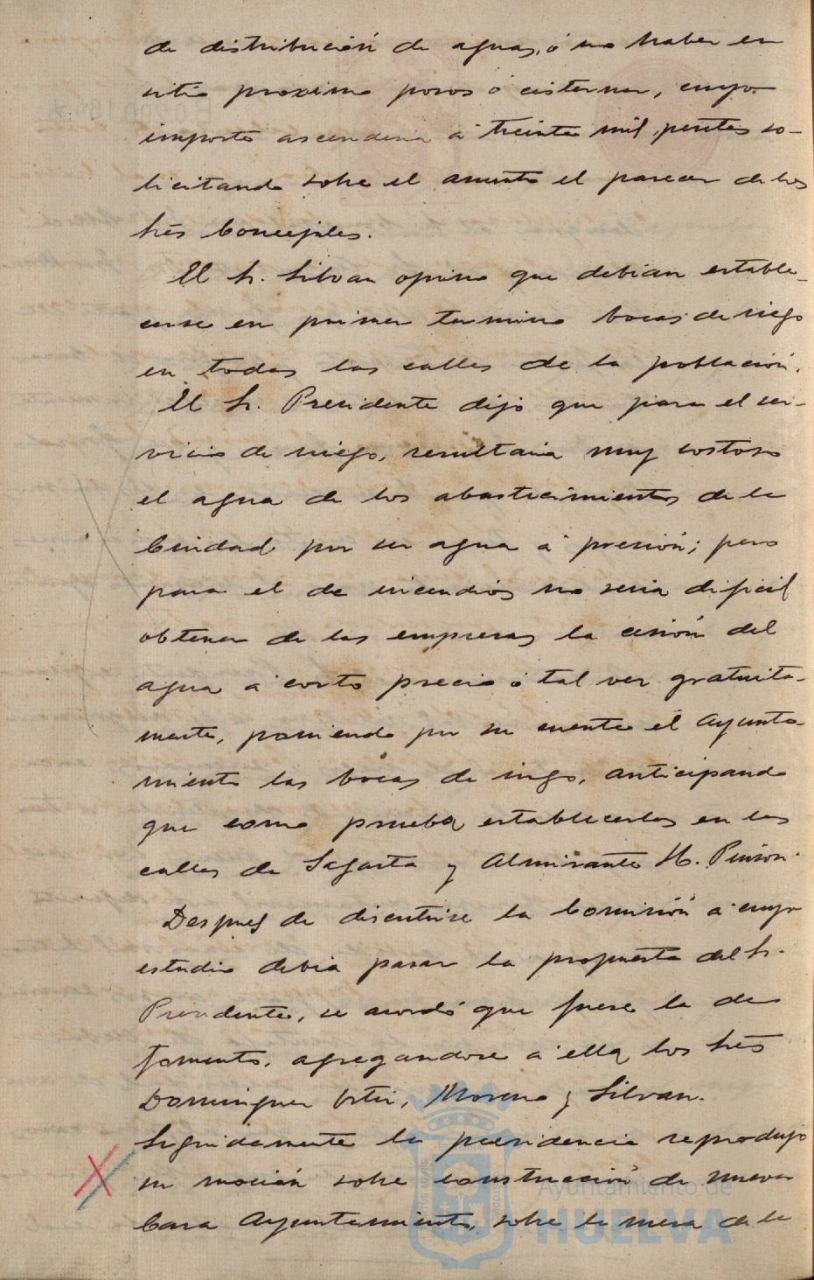 de distribución de aguas, ó no haber en
sitio proximo pozos ó cisternas, cuyo
importe ascenderia á treinta mil pesetas so-
licitando sobre el asunto el parecer de los
Srés Concejales.
El Sr. Silvan opino que debian estable-
cerse en primer termino bocas de riego
en todas las calles de la población.
El Sr. Presidente dijo que para el ser-
vicio de riego, resultaria muy costoso
el agua de los abastecimientos de la
Ciudad por ser agua á presión; pero
para el de incendios no seria dificil
obtener de las empresas la cesión del
agua á corto precio ó tal vez gratuita-
mente, poniendo por su cuenta el Ayunta-
miento las bocas de riego, anticipando
que como prueba establecerlas en las
calles de Sagasta y Almirante H. Pinzón.
Despues de discutirse la Comisión á cuyo
estudio debia pasar la propuesta del Sr.
Presidente, se acordó que fuese la de
fomento, agregandose á ella los Srés
Dominguez Ortiz, Moreno y Silvan.
Seguidamente la presidencia reprodujo
su moción sobre construcción de nueva
Casa Ayuntamiento, sobre la mesa de la
Ayuntamiento de
HUELVA